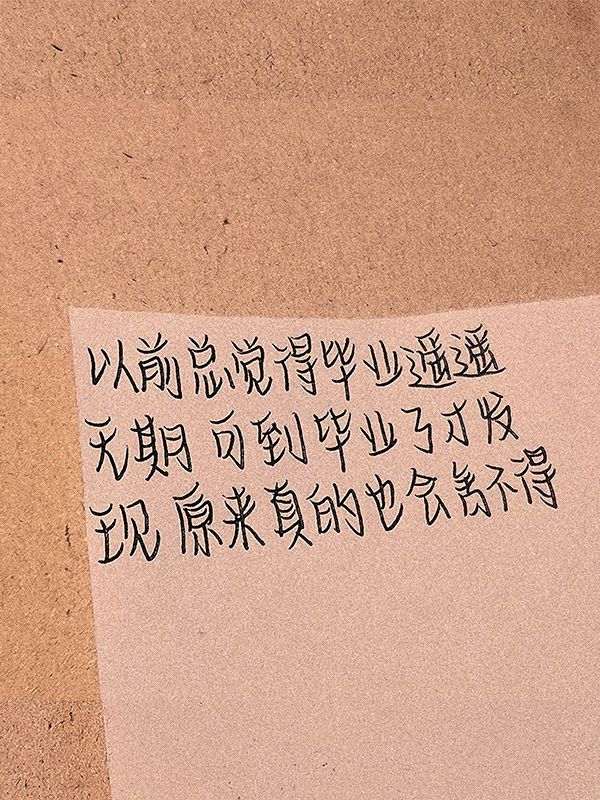 以前总觉得毕业遥遥
无期 可到毕业了才发
现 原来真的也会舍不得